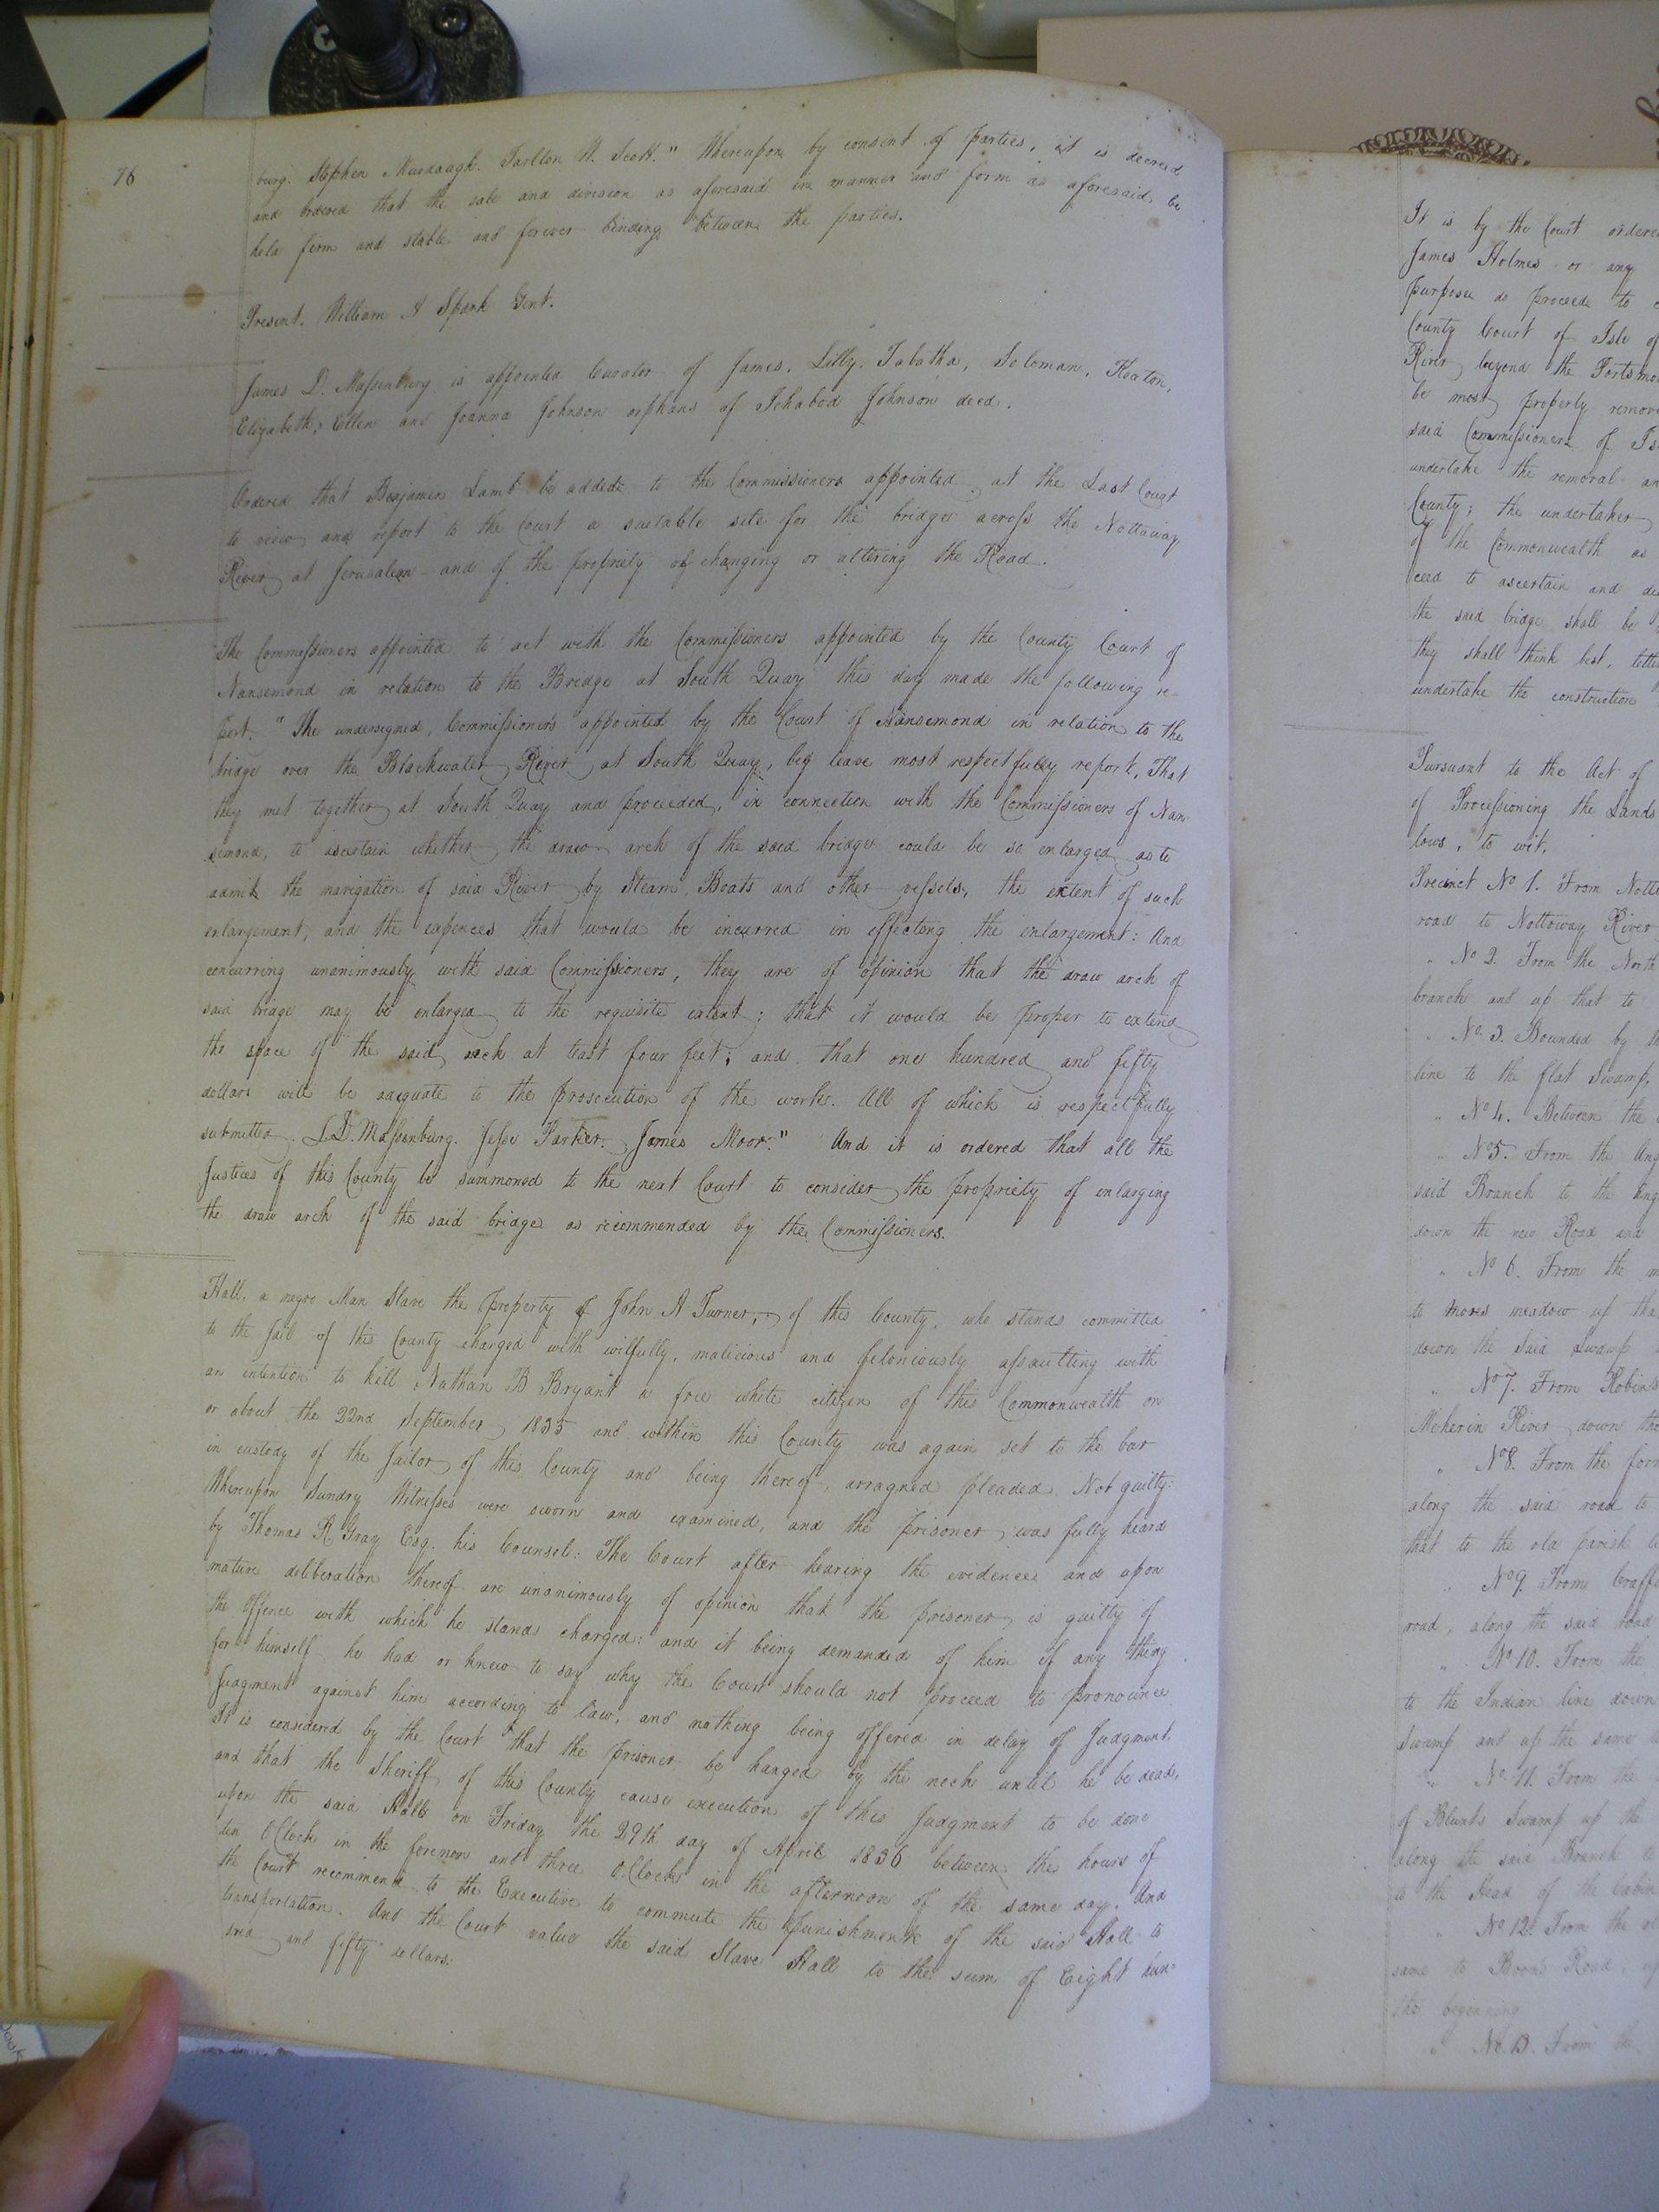 76
burg. Stephen Murdaugh. Tarlton W. Scott." Whereupon by consent of parties, it is decreed
and ordered that the sale and division as aforesaid in manner and form as aforesaid be
held firm and stable and forever binding between the parties.
Present. William A Spark Gent.
James D. Maſsenburg is appointed Curator of James, Lilly, Tabatha, Soloman, Keaton,
Elizabeth, Ellen and Joanna Johnson orphans of Ichabod Johnson decd.
Ordered that Benjamin Lamb be added to the Commissioners appointed at the Last Court
to view and report to the Court a suitable site for the bridge acroſs the Nottoway
River at Jerusalem and of the propriety of changing or altering the Road.
The Commiſsioners appointed to act with the Commiſsioners appointed by the County Court of
Nansemond in relation to the Bridge at South Quay this day made the following re-
port. "The undersigned, Commiſsioners appointed by the Court of Nansemond in relation to the
bridge over the Blackwater River at South Quay, beg leave most respectfully report, That
they met together at South Quay and proceeded, in connection with the Commiſsioners of Nan-
semond, to ascertain whether the draw arch of the said bridge could be so enlarged as to
admit the navigation of said River by Steam Boats and other veſsels, the extent of such
enlargement, and the expences that would be incurred in effecting the enlargement: And
concurring unanimously with said Commiſsioners, they are of opinion that the draw arch of
said bridge may be enlarged to the requisite extent; that it would be proper to extend
the space of the said arch at least four feet; and that one hundred and fifty
dollars will be adequate to the prosecution of the work. All of which is respectfully
submitted. L.D. Maſsenburg. Jeſse Parker. James Moor." And it is ordered that all the
Justices of this County be summoned to the next Court to consider the propriety of enlarging
the draw arch of the said bridge as recommended by the Commiſsioners.
Hall, a negro man Slave the property of John A Turner, of this County, who stands committed
to the Jail of this County charged with wilfully, malicious and feloniously aſsaulting with
an intention to kill Nathan B Bryant a free white citizen of this Commonwealth on
or about the 22nd September 1835 and within this County was again set to the bar
in custody of the Jailor of this County and being thereof arragned pleaded Not guilty:
Whereupon Sundry Witneſses were sworn and examined, and the prisoner was fully heard
by Thomas R Gray Esq. his Counsel: The Court after hearing the evidence and upon
mature deliberation thereof are unanimously of opinion that the prisoner is guilty of
the offence with which he stands charged: and it being demanded of him if any thing
for himself he had or knew to say why the Court should not proceed to pronounce
Judgment against him according to law, and nothing being offered in delay of Judgment.
It is considered by the Court that the prisoner be hanged by the neck until he be dead,
and that the Sheriff of this County cause execution of this Judgment to be done
upon the said Hall on Friday the 29th day of April 1836 between the hours of
ten OClock in the forenoon and three OClock in the afternoon of the same day. And
the Court recommend to the Executive to commute the punishment of the said Hall to
transportation. And the Court value the said Slave Hall to the sum of Eight hun-
dred and fifty dollars.
It is by the Court ordered
James Holmes or any
purpose do proceede to
County Court of Isle of
River beyond the Portsmo
be most properly remov
said Commiſsioners of Is
undertake the removal an
County; the undertaker
of the Commonwealth as
ceed to ascertain and de
the said bridge shall be
they shall think best,
undertake the construction
Pursuant to the Act of
of Proceſsioning the Lands
lows, to wit,
Precinct No 1. From Notto
road to Nottoway River
" No 2. From the North
branch and up that to
" No. 3. Bounded by th
line to the flat Swamp,
" No 4. Between the
" No 5. From the
said Branch to the
down the new Road and
" No 6. From the m
to mores meadow up tha
down the said Swamp
" No 7. From Robins
Meherin River down the
" No 8. From the for
along the said road to
that to the old parish li
" No 9. From
road, along the said road
" No 10. From the
to the Indian line down
Swamp and up the same
" No. 11. From the
of Blunts Swamp up the
along the said Branch to
to the Head of the Cabin
" No 12. From the ol
same to Boons Road, up
the beginning
" No. 13. From the